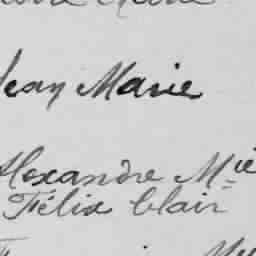 Jean Marie
Alexandre Mie
Félix Clair